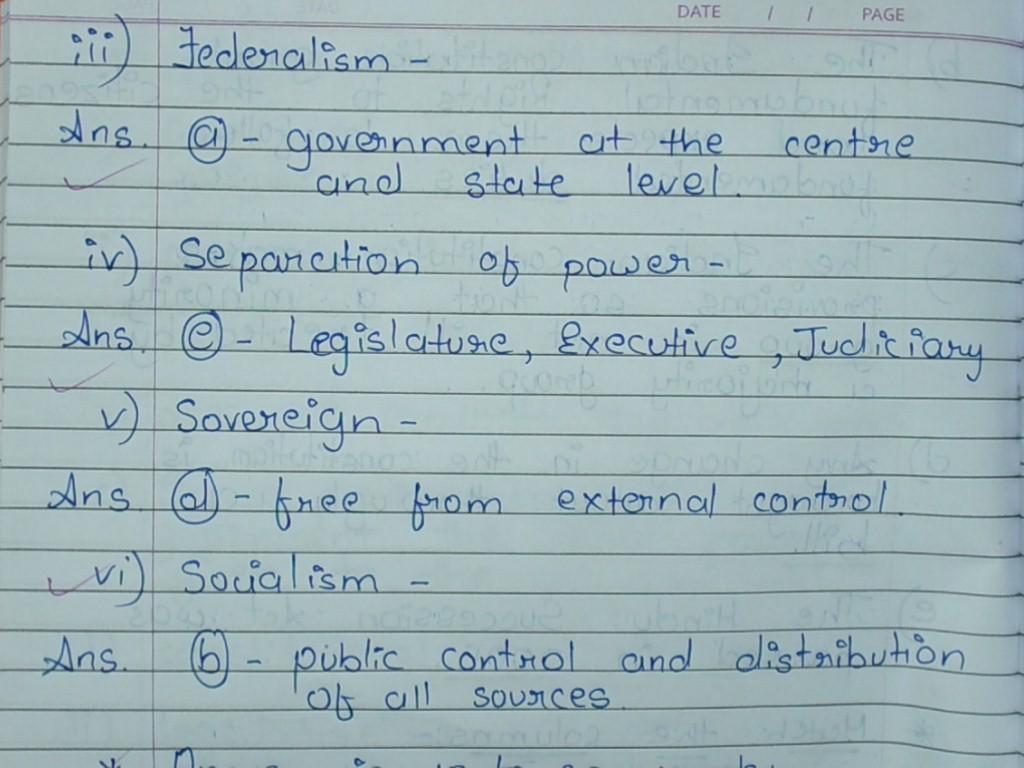 DATE / / PAGE
iii) Federalism -
Ans. (a) - government at the centre
and state level.
iv) Separation of power -
Ans. (e) - Legislature, Executive, Judiciary
v) Sovereign -
Ans. (d) - free from external control.
vi) Socialism -
Ans. (b) - public control and distribution
of all sources.